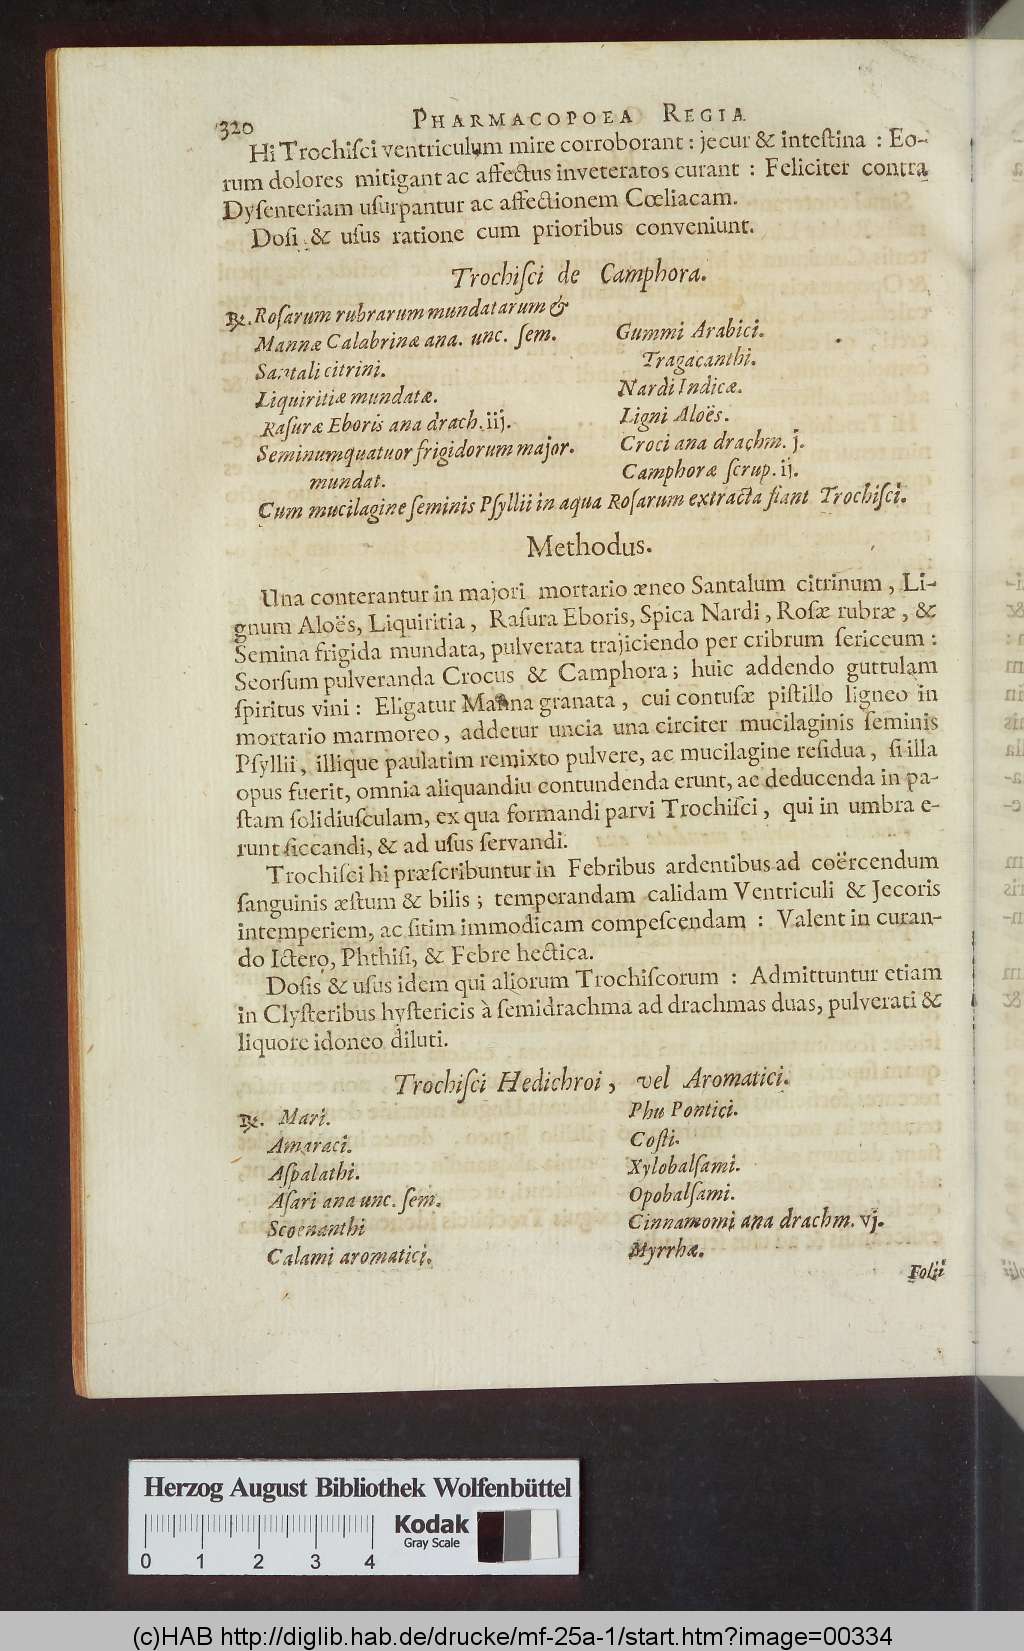 320 PHARMACOPOEA REGIA
Hi Trochiſci ventriculum mire corroborant : jecur & inteſtina : Eo-
rum dolores mitigant ac affectus inveteratos curant : Feliciter contra
Dyſenteriam uſurpantur ac affectionem Cœliacam.
Doſi & uſus ratione cum prioribus conveniunt.
Trochiſci de Camphora.
℞. Roſarum rubrarum mundatarum &
Mannæ Calabrinæ ana. unc. ſem.
Santali citrini.
Liquiritiæ mundatæ.
Raſuræ Eboris ana drach. iij.
Seminum quatuor frigidorum major.
mundat.
Gummi Arabici.
Tragacanthi.
Nardi Indicæ.
Ligni Aloës.
Croci ana drachm. j.
Camphoræ ſcrup. ij.
Cum mucilagine ſeminis Pſyllii in aqua Roſarum extracta fiant Trochiſci.
Methodus.
Una conterantur in majori mortario æneo Santalum citrinum, Li-
gnum Aloës, Liquiritia, Raſura Eboris, Spica Nardi, Roſæ rubræ, &
Semina frigida mundata, pulverata trajiciendo per cribrum ſericeum :
Seorſum pulveranda Crocus & Camphora; huic addendo guttulam
ſpiritus vini : Eligatur Manna granata, cui contuſæ piſtillo ligneo in
mortario marmoreo, addetur uncia una circiter mucilaginis ſeminis
Pſyllii, illique paulatim remixto pulvere, ac mucilagine reſidua, ſi illa
opus fuerit, omnia aliquandiu contundenda erunt, ac deducenda in pa-
ſtam ſolidiuſculam, ex qua formandi parvi Trochiſci, qui in umbra e-
runt ſiccandi, & ad uſus ſervandi.
Trochiſci hi præſcribuntur in Febribus ardentibus ad coërcendum
ſanguinis æſtum & bilis; temperandam calidam Ventriculi & Jecoris
intemperiem, ac ſitim immodicam compeſcendam : Valent in curan-
do Ictero, Phthiſi, & Febre hectica.
Doſis & uſus idem qui aliorum Trochiſcorum : Admittuntur etiam
in Clyſteribus hyſtericis à ſemidrachma ad drachmas duas, pulverati &
liquore idoneo diluti.
Trochiſci Hedichroi, vel Aromatici.
℞. Mari.
Amaraci.
Aſpalathi.
Aſari ana unc. ſem.
Scoenanthi
Calami aromatici.
Phu Pontici.
Coſti.
Xylobalſami.
Opobalſami.
Cinnamomi ana drachm. vj.
Myrrhæ.
Folii
Herzog August Bibliothek Wolfenbüttel
Kodak
Gray Scale
0 1 2 3 4
(c)HAB http://diglib.hab.de/drucke/mf-25a-1/start.htm?image=00334